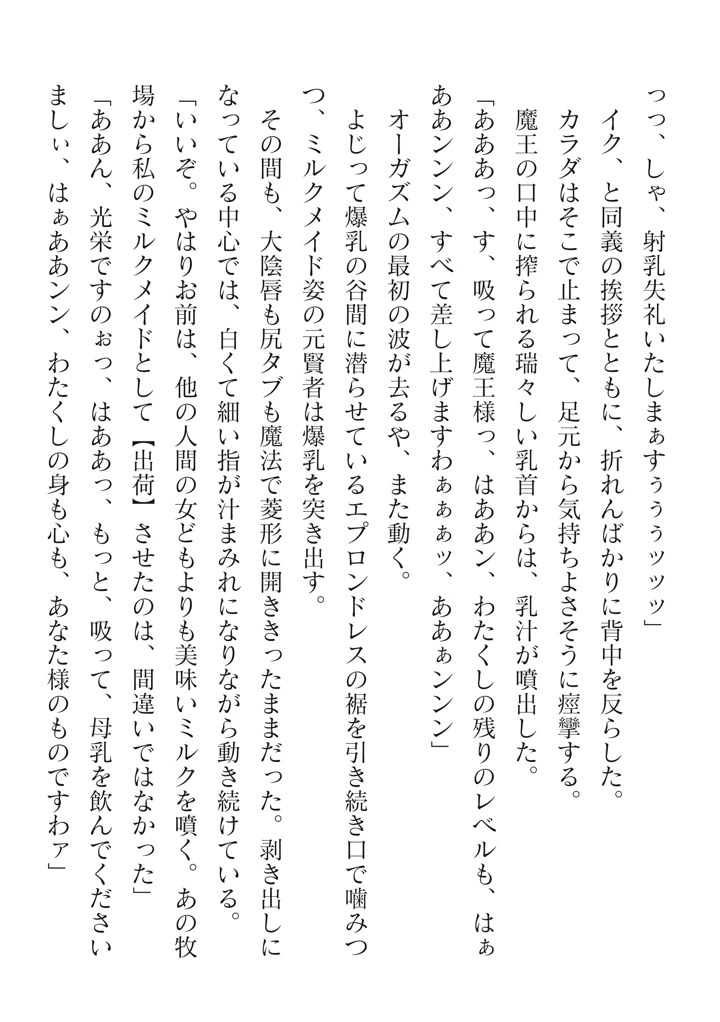 っっ、しゃ、射乳失礼いたしまぁすぅぅぅッッッ」
イク、と同義の挨拶とともに、折れんばかりに背中を反らした。
カラダはそこで止まって、足元から気持ちよさそうに痙攣する。
魔王の口中に搾られる瑞々しい乳首からは、乳汁が噴出した。
「あああっ、す、吸って魔王様っ、はああン、わたくしの残りのレベルも、はぁ
ああンンン、すべて差し上げますわぁぁぁッ、ああぁンンン」
オーガズムの最初の波が去るや、また動く。
よじって爆乳の谷間に潜らせているエプロンドレスの裾を引き続き口で噛みつ
つ、ミルクメイド姿の元賢者は爆乳を突き出す。
その間も、大陰唇も尻タブも魔法で菱形に開ききったままだった。剥き出しに
なっている中心では、白くて細い指が汁まみれになりながら動き続けている。
「いいぞ。やはりお前は、他の人間の女どもよりも美味いミルクを噴く。あの牧
場から私のミルクメイドとして【出荷】させたのは、間違いではなかった」
「ああん、光栄ですのぉっ、はああっ、もっと、吸って、母乳を飲んでください
ましぃ、はぁああンン、わたくしの身も心も、あなた様のものですわァ」